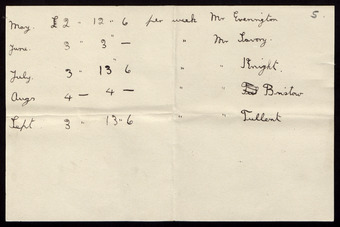 May. £2 " 12 " 6 per week Mr Evenington 5.
June. 3 " 3 " — " Mr Savory.
July. 3 " 13 " 6 " " Knight.
Augs 4 — 4 — " " Bristow
Sept 3 " 13 " 6 " " Fullent